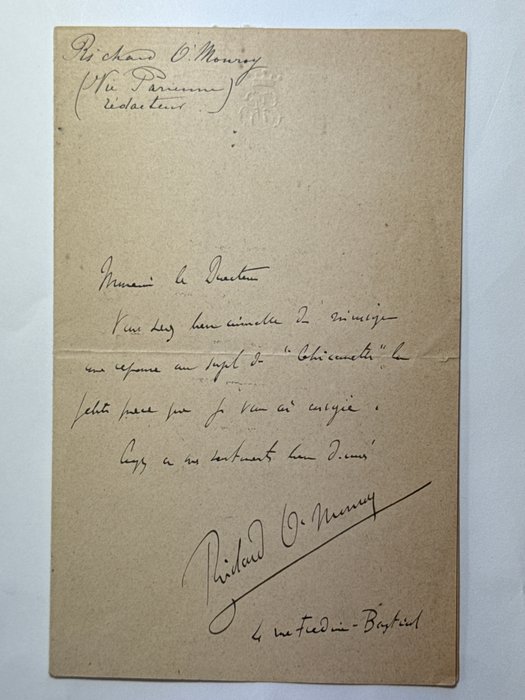 Richard O'Monroy
(Vie Parisienne)
rédacteur.
Monsieur le Directeur
Vous serez bien aimable de m'envoyer
une réponse au sujet de "Chicanette" la
petite pièce que je vous ai envoyée.
Croyez à mes sentiments bien dévoués
Richard O'Monroy
4 rue Frédéric-Bastiat